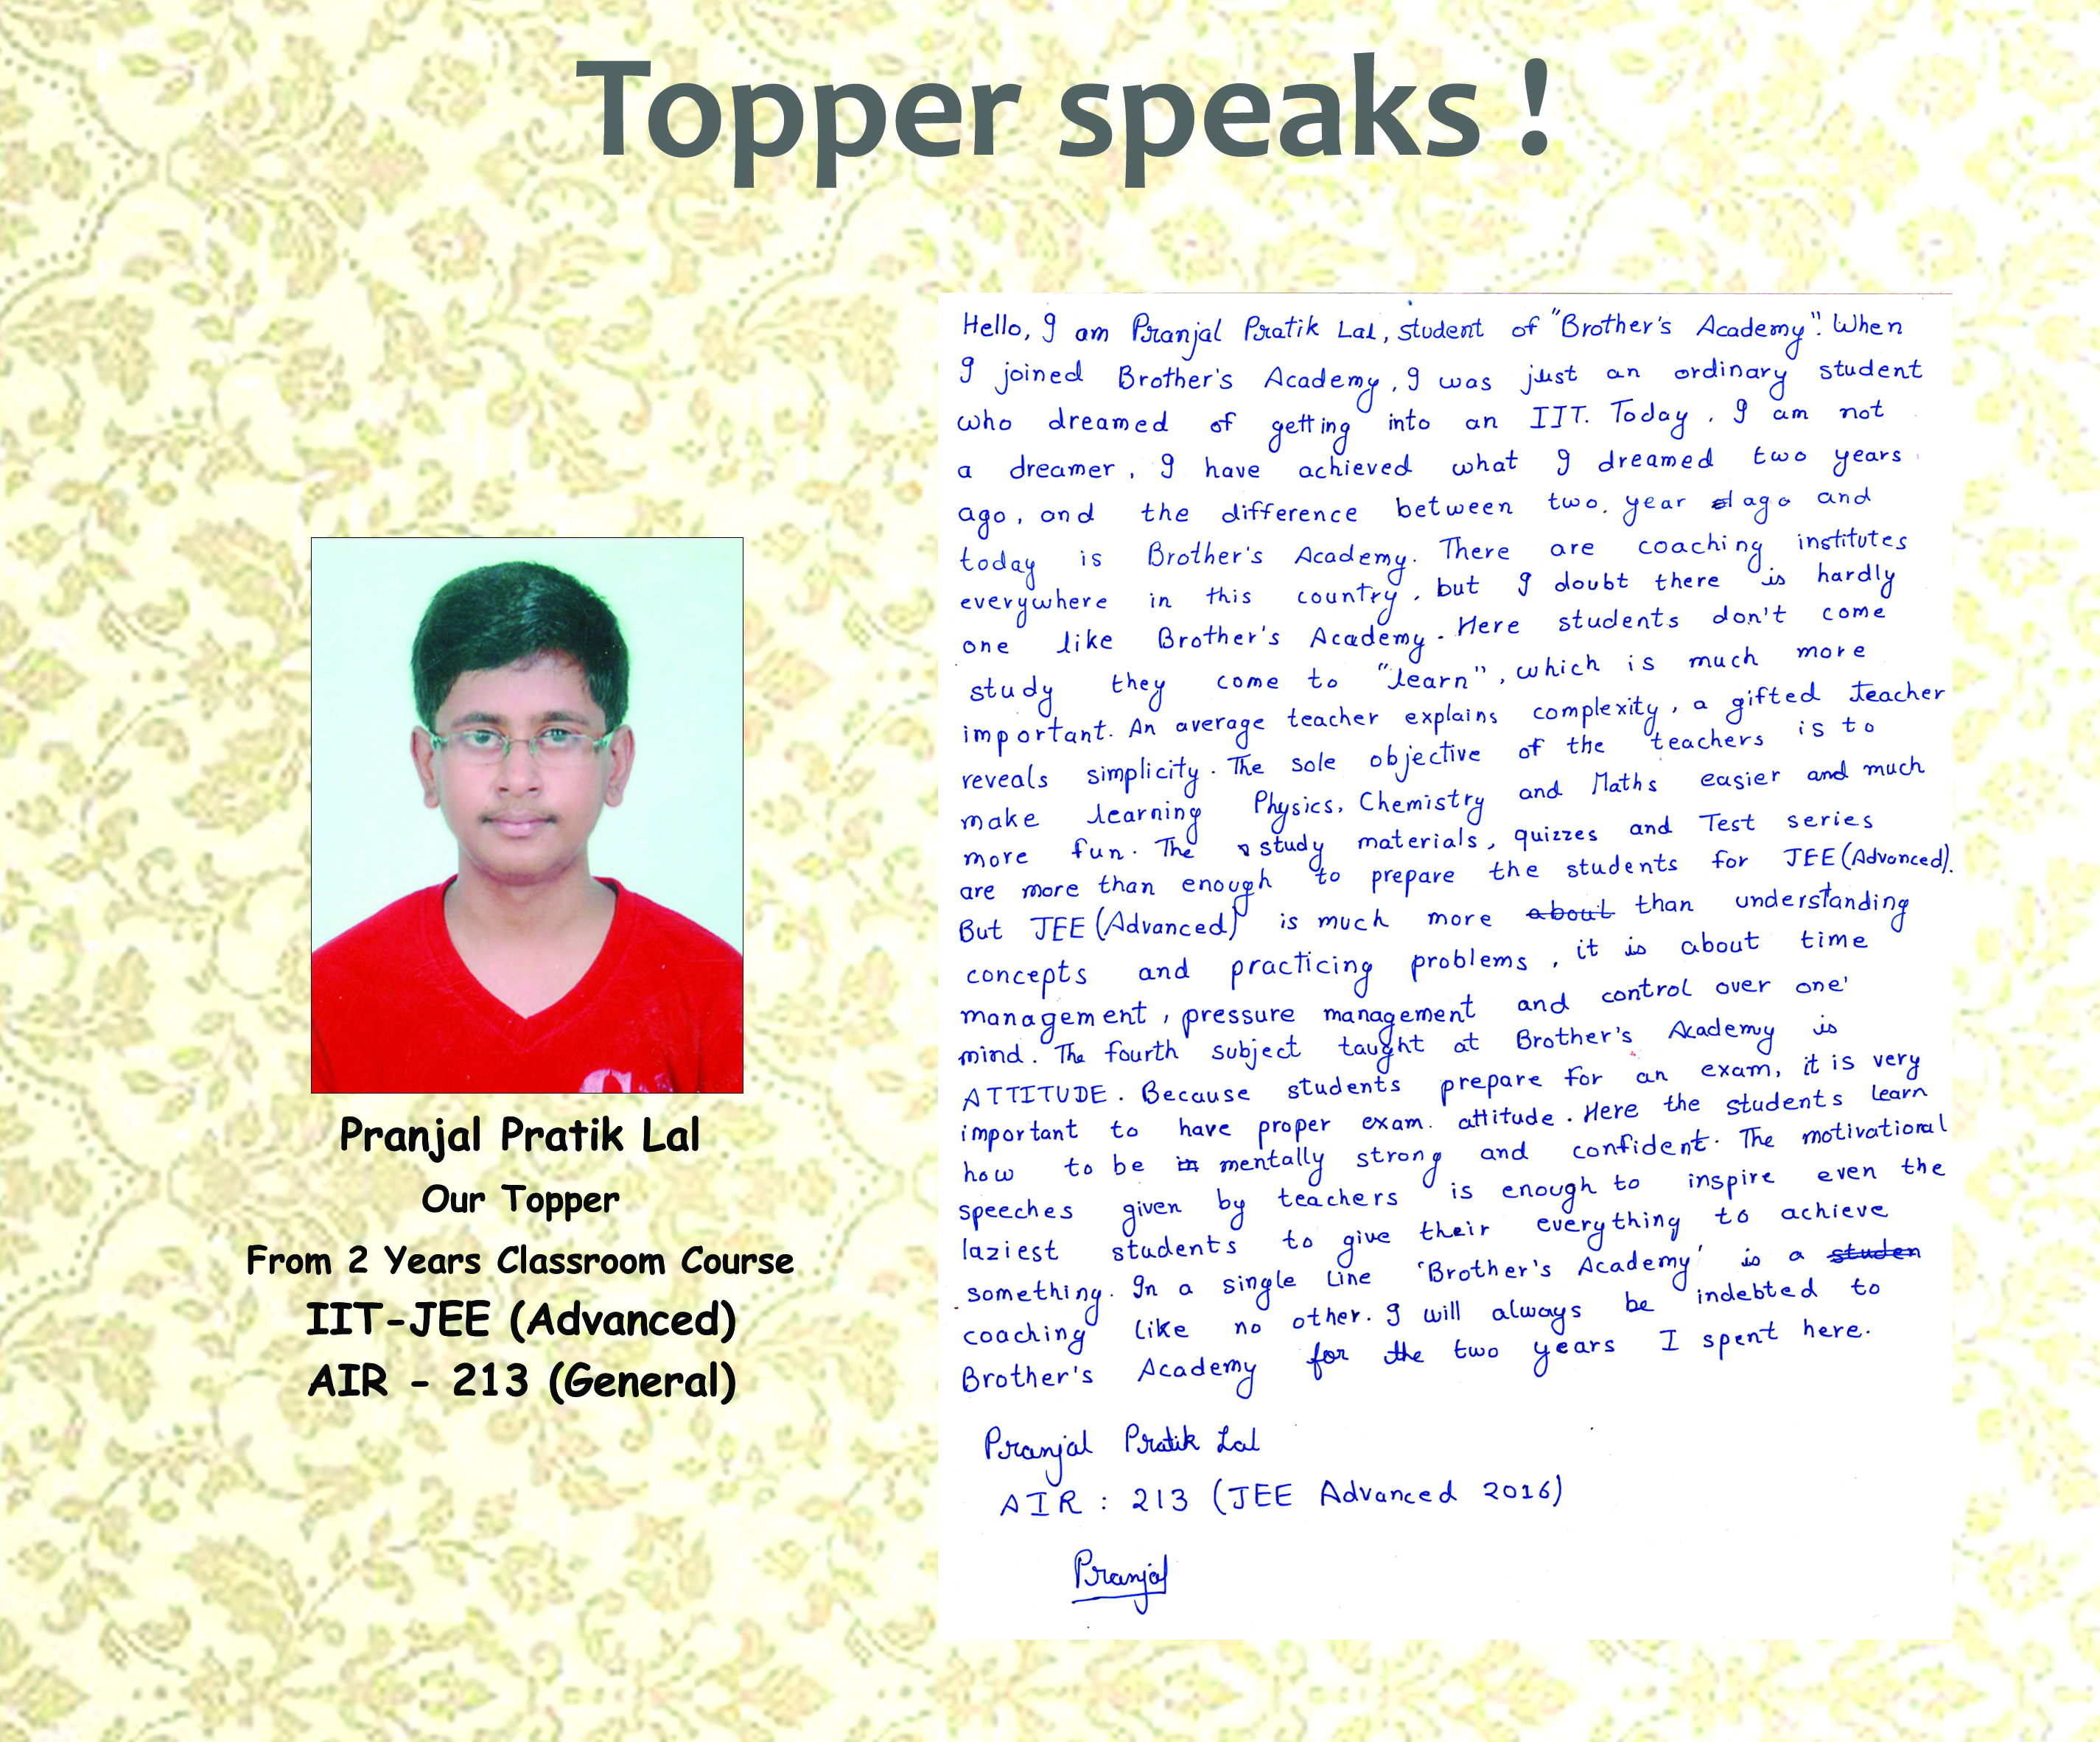 Topper speaks !
Hello, I am Pranjal Pratik Lal, student of "Brother's Academy". When
I joined Brother's Academy, I was just an ordinary student
who dreamed of getting into an IIT. Today, I am not
a dreamer, I have achieved what I dreamed two years
ago, and the difference between two year ago and
today is Brother's Academy. There are coaching institutes
everywhere in this country, but I doubt there is hardly
one like Brother's Academy. Here students don't come
study they come to "learn", which is much more
important. An average teacher explains complexity, a gifted teacher
reveals simplicity. The sole objective of the teachers is to
make learning Physics, Chemistry and Maths easier and much
more fun. The study materials, quizzes and Test series
are more than enough to prepare the students for JEE (Advanced).
But JEE (Advanced) is much more about than understanding
concepts and practicing problems, it is about time
management, pressure management and control over one'
mind. The fourth subject taught at Brother's Academy is
ATTITUDE. Because students prepare for an exam, it is very
important to have proper exam. attitude. Here the students learn
how to be in mentally strong and confident. The motivational
speeches given by teachers is enough to inspire even the
laziest students to give their everything to achieve
something. In a single line 'Brother's Academy' is a studen
coaching like no other. I will always be indebted to
Brother's Academy for the two years I spent here.
Pranjal Pratik Lal
AIR : 213 (JEE Advanced 2016)
Pranjal
Pranjal Pratik Lal
Our Topper
From 2 Years Classroom Course
IIT-JEE (Advanced)
AIR - 213 (General)